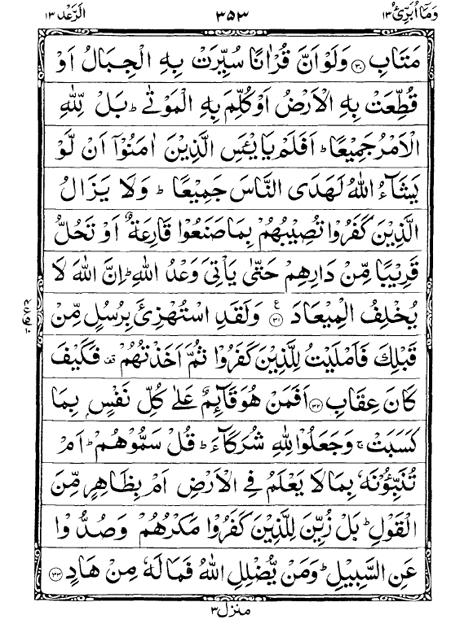 وَمَآ اُبَرِّئُ ۱۳ ۳۵۳ الرَّعْد ۱۳
مَتَابِ ﴿۳۰﴾ وَلَوْ اَنَّ قُرْاٰنًا سُيِّرَتْ بِهِ الْجِبَالُ اَوْ
قُطِّعَتْ بِهِ الْاَرْضُ اَوْ كُلِّمَ بِهِ الْمَوْتٰى ؕ بَلْ لِّلّٰهِ
الْاَمْرُ جَمِيْعًا ؕ اَفَلَمْ يَايْـَٔسِ الَّذِيْنَ اٰمَنُوْٓا اَنْ لَّوْ
يَشَآءُ اللّٰهُ لَهَدَى النَّاسَ جَمِيْعًا ؕ وَلَا يَزَالُ
الَّذِيْنَ كَفَرُوْا تُصِيْبُهُمْ بِمَا صَنَعُوْا قَارِعَةٌ اَوْ تَحُلُّ
قَرِيْبًا مِّنْ دَارِهِمْ حَتّٰى يَاْتِيَ وَعْدُ اللّٰهِ ؕ اِنَّ اللّٰهَ لَا
يُخْلِفُ الْمِيْعَادَ ﴿۳۱﴾ ع وَلَقَدِ اسْتُهْزِئَ بِرُسُلٍ مِّنْ
قَبْلِكَ فَاَمْلَيْتُ لِلَّذِيْنَ كَفَرُوْا ثُمَّ اَخَذْتُهُمْ فَكَيْفَ
كَانَ عِقَابِ ﴿۳۲﴾ اَفَمَنْ هُوَ قَآئِمٌ عَلٰى كُلِّ نَفْسٍۭ بِمَا
كَسَبَتْ ۚ وَجَعَلُوْا لِلّٰهِ شُرَكَآءَ ؕ قُلْ سَمُّوْهُمْ ؕ اَمْ
تُنَبِّـُٔوْنَهٗ بِمَا لَا يَعْلَمُ فِي الْاَرْضِ اَمْ بِظَاهِرٍ مِّنَ
الْقَوْلِ ؕ بَلْ زُيِّنَ لِلَّذِيْنَ كَفَرُوْا مَكْرُهُمْ وَصُدُّوْا
عَنِ السَّبِيْلِ ؕ وَمَنْ يُّضْلِلِ اللّٰهُ فَمَا لَهٗ مِنْ هَادٍ ﴿۳۳﴾
منزل ۳